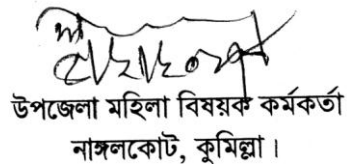 উপজেলা মহিলা বিষয়ক কর্মকর্তা
নাঙ্গলকোট, কুমিল্লা।